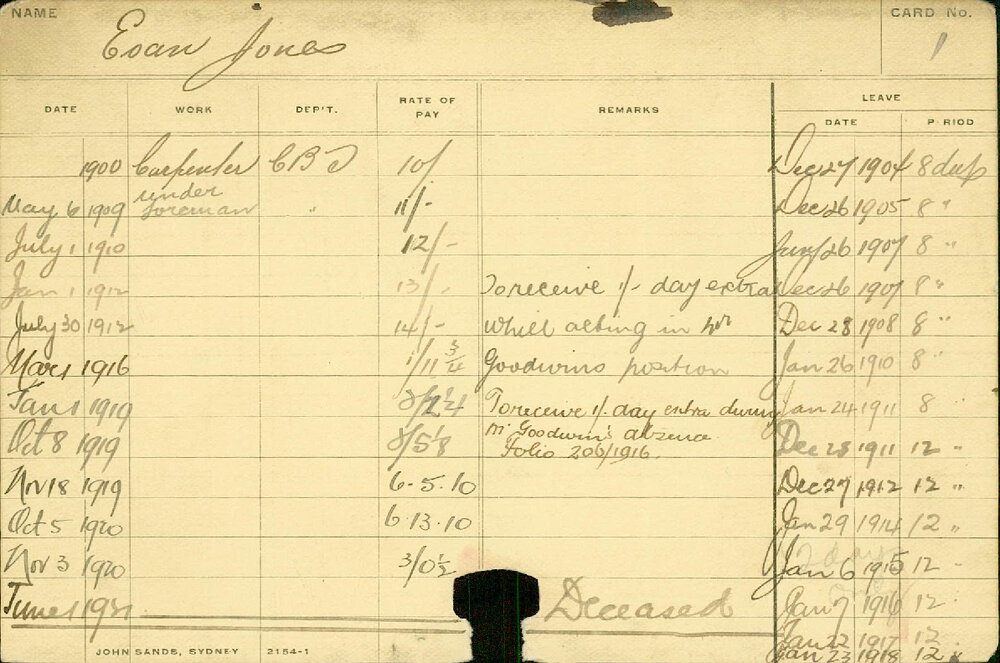 NAME
CARD No.
Evan Jones
1
DATE WORK DEP'T. RATE OF PAY REMARKS LEAVE
DATE P RIOD
1900 Carpenter 10/ Dec 27 1904 8 days
May 6 1909 under foreman " 11/- Dec 26 1905 8 "
July 1 1910 12/- 26 1907 8 "
Jan 1 1912 13/- To receive 1/- day extra Dec 26 1907 8 "
July 30 1912 14/- whilst acting in Mr Dec 28 1908 8 "
Mar 1 1916 1/11 3/4 Goodwins position Jan 26 1910 8 "
Jan 1 1919 2/2 1/4 To receive 1/- day extra during Jan 24 1911 8
Mr Goodwin's absence
Oct 8 1919 Folio 206/1916. Dec 28 1911 12 "
Nov 18 1919 6-5.10 Dec 27 1912 12 "
Oct 5 1920 6.13.10 Jan 29 1914 12 "
12 days
Nov 3 1920 3/0 1/2 Jan 6 1915 12 "
June 1 Deceased Jan 7 1916 12 "
Jan 22 1917 12
Jan 23 1918 12
JOHN SANDS, SYDNEY 2154-1